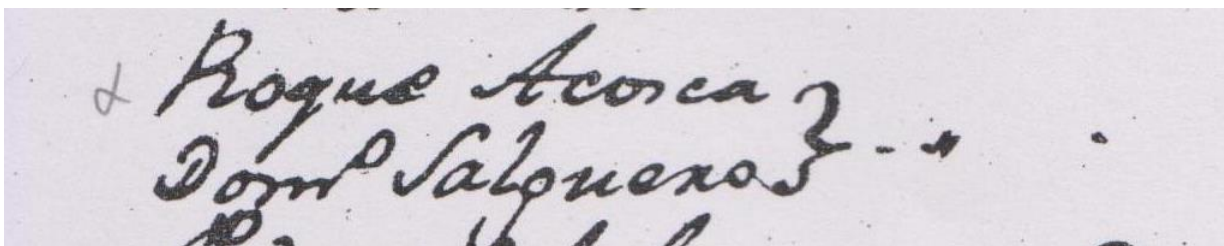 Roque Acosta
Domº Salguero